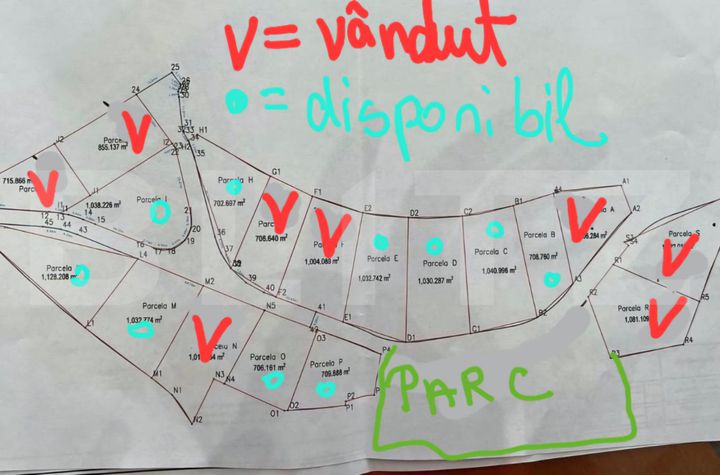 V = vândut
• = disponibil
25
26
30
24
Parce
855.137 m²
V
31
32 33 H1
34
35
J2
715.866 m²
Parc
V
J1
1,038.226 m²
Parcela I
21
20
19
18
17
16
12 13 14 15
45 44 43
L4
Parcela H
702.697 m²
G1
Parcela
706.640 m²
V
F1
Parcela F
1,004.089 m²
V
E2
Parcela E
1,032.742 m²
D2
Parcela D
1,030.287 m²
C2
Parcela C
1,040.996 m²
B1
Parcela B
708.760 m²
A1
A2
A
V
A3
36
37
39
40 F2
41
E1
D1
C1
B2
Parcela
1,128.208 m²
L1
Parcela M
1,032.774 m²
M2
M1
N5
N
V
N1
N2
N3 N4
Parcela O
706.161 m²
O3
O1 O2
Parcela P
709.888 m²
P4
P1
PARC
Parcela S
S3
S4
V
R1
R2
Parcela R
1,081.109
V
R5
R4
R3